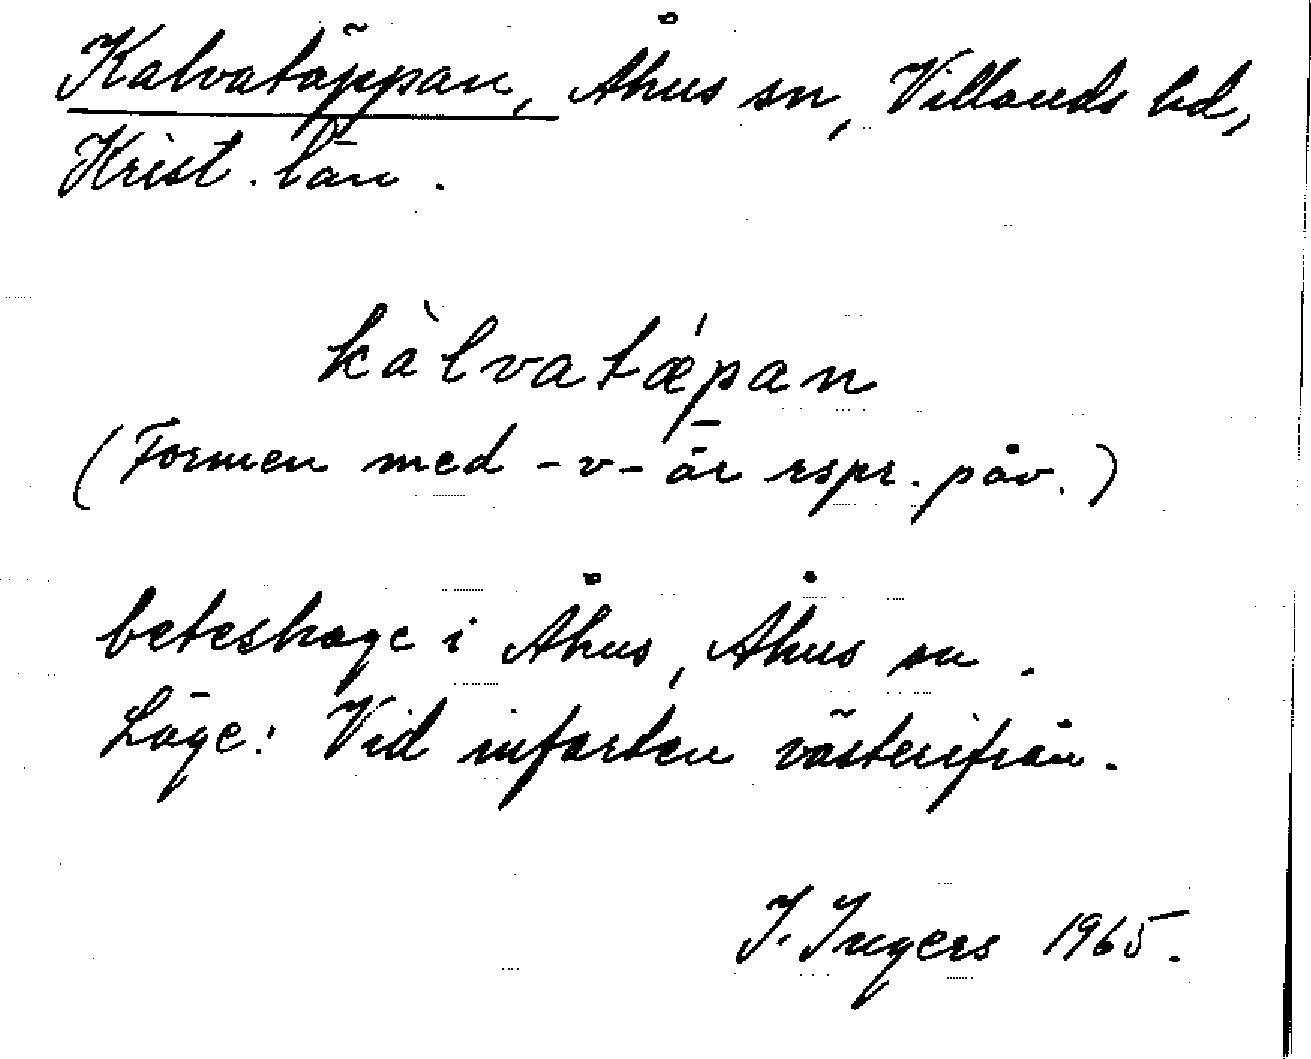 Kalvatäppan, Åhus sn, Villands hd,
Krist. län.
kàlvatǽpan
(Formen med -v- är rspr. påv.)
beteshage i Åhus, Åhus sn.
Läge: Vid infarten västerifrån.
I. Ingers 1965.